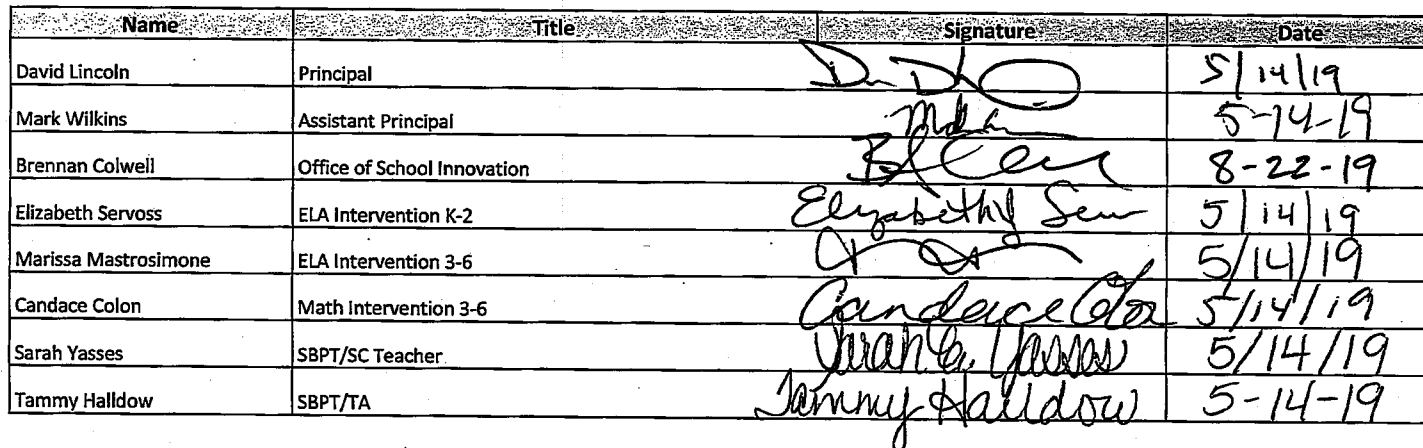 Name Title Signature Date
David Lincoln Principal 5/14/19
Mark Wilkins Assistant Principal 5-14-19
Brennan Colwell Office of School Innovation 8-22-19
Elizabeth Servoss ELA Intervention K-2 Elizabeth 5/14/19
Marissa Mastrosimone ELA Intervention 3-6 5/14/19
Candace Colon Math Intervention 3-6 Candace Colon 5/14/19
Sarah Yasses SBPT/SC Teacher Sarah Yasses 5/14/19
Tammy Halldow SBPT/TA Tammy Halldow 5-14-19